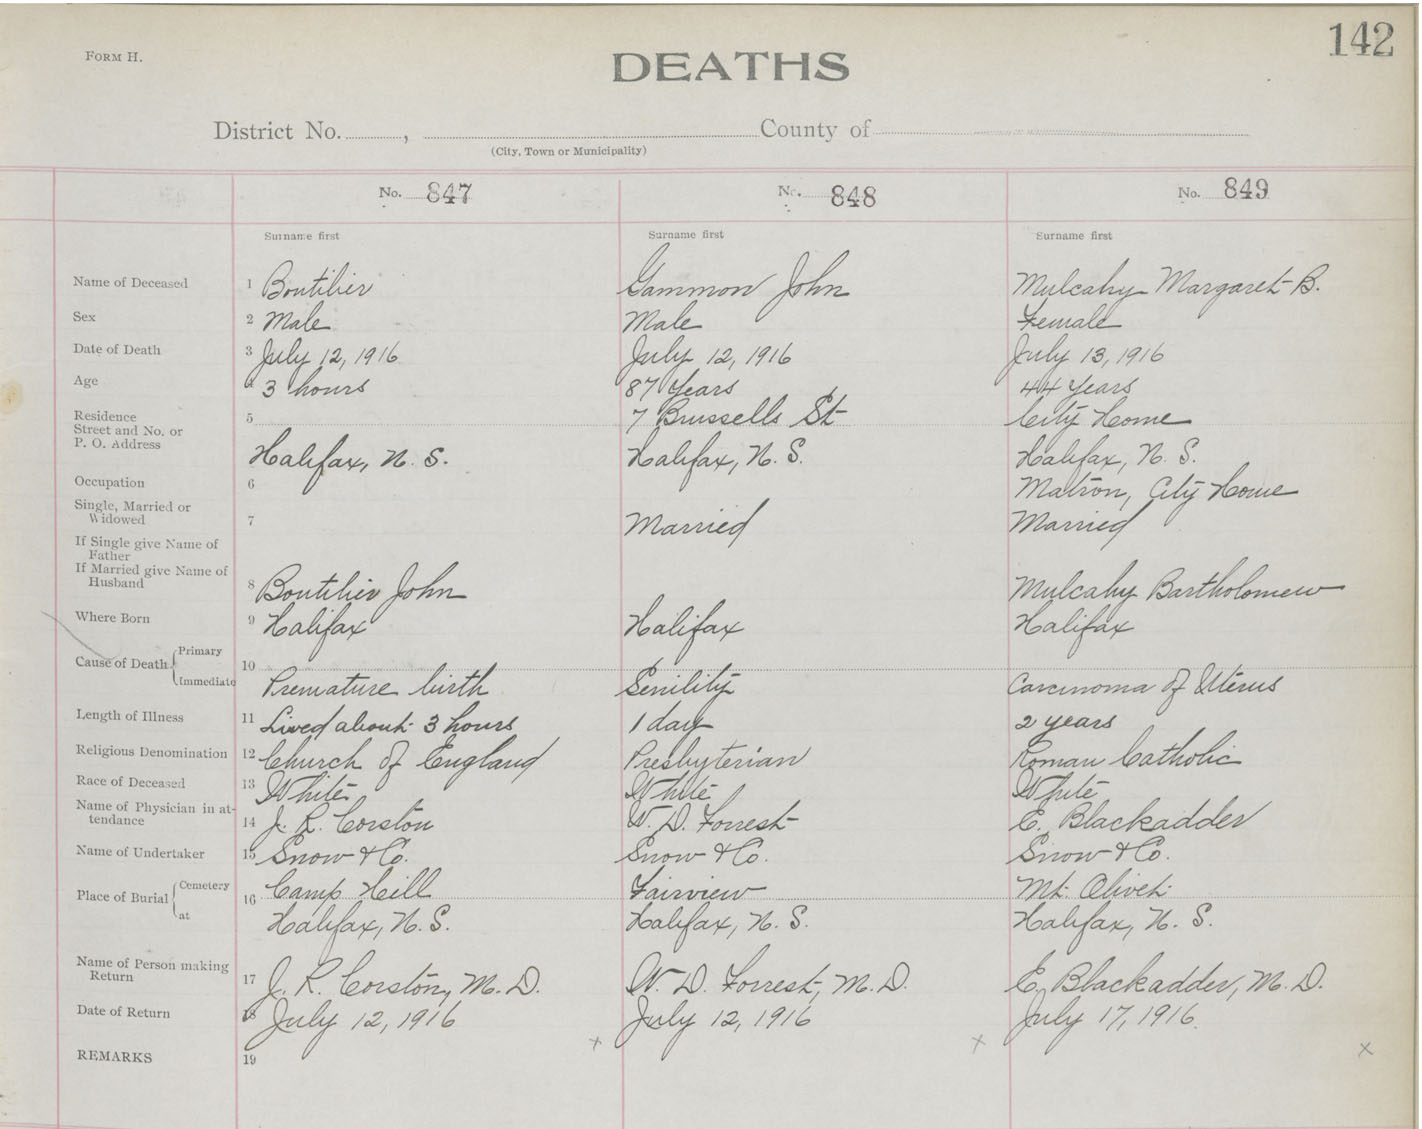 142
FORM H.
DEATHS
District No. , County of
(City, Town or Municipality)
No. 847 No. 848 No. 849
Surname first Surname first Surname first
Name of Deceased 1 Boutilier Gammon John Mulcahy Margaret B.
Sex 2 Male Male Female
Date of Death 3 July 12, 1916 July 12, 1916 July 13, 1916
Age 4 3 hours 87 Years 44 Years
Residence 5 7 Brussells St City Home
Street and No. or
P. O. Address Halifax, N. S. Halifax, N. S. Halifax, N. S.
Occupation 6 Matron, City Home
Single, Married or
Widowed 7 Married Married
If Single give Name of
Father
If Married give Name of
Husband 8 Boutilier John Mulcahy Bartholomew
Where Born 9 Halifax Halifax Halifax
Primary
Cause of Death 10
Immediate Premature birth Senility Carcinoma of Uterus
Length of Illness 11 Lived about 3 hours 1 day 2 years
Religious Denomination 12 Church of England Presbyterian Roman Catholic
Race of Deceased 13 White White White
Name of Physician in at-
tendance 14 J. R. Corston W. D. Forrest E. Blackadder
Name of Undertaker 15 Snow & Co. Snow & Co. Snow & Co.
Cemetery Camp Hill Fairview Mt. Olivet
Place of Burial 16
at Halifax, N. S. Halifax, N. S. Halifax, N. S.
Name of Person making
Return 17 J. R. Corston, M. D. W. D. Forrest, M. D. E. Blackadder, M. D.
Date of Return 18 July 12, 1916 July 12, 1916 July 17, 1916.
x x x
REMARKS 19